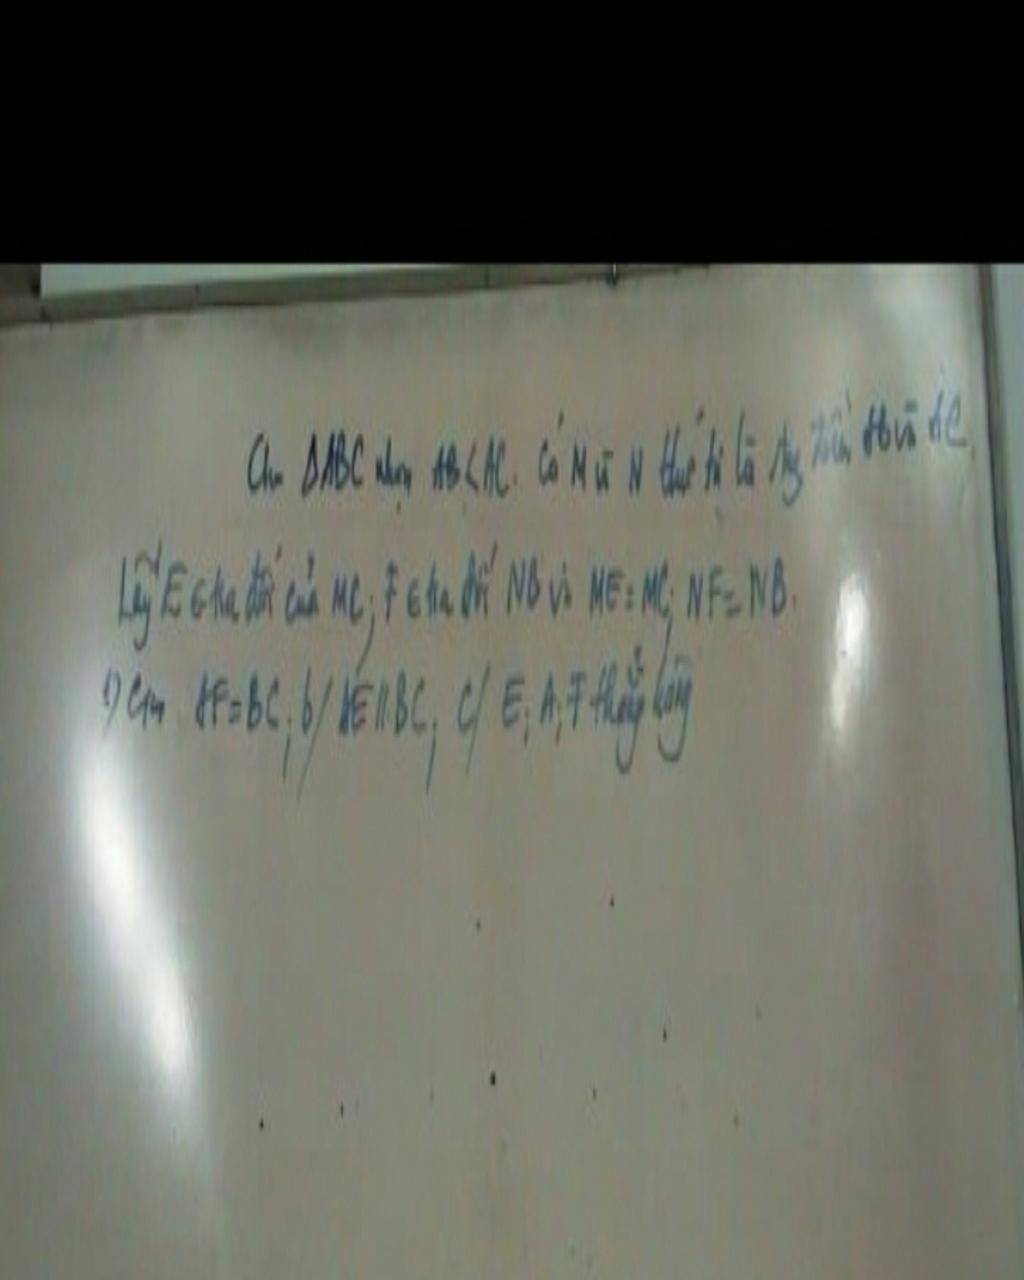 Cho ΔABC nhọn AB<AC. Có M và N thứ tự là AB và AC.
Lấy E ∈ tia đối của MC; F ∈ tia đối NB và ME=MC; NF=NB.
1) Cm AF=BC; b/ AE//BC; c/ E; A; F thẳng hàng